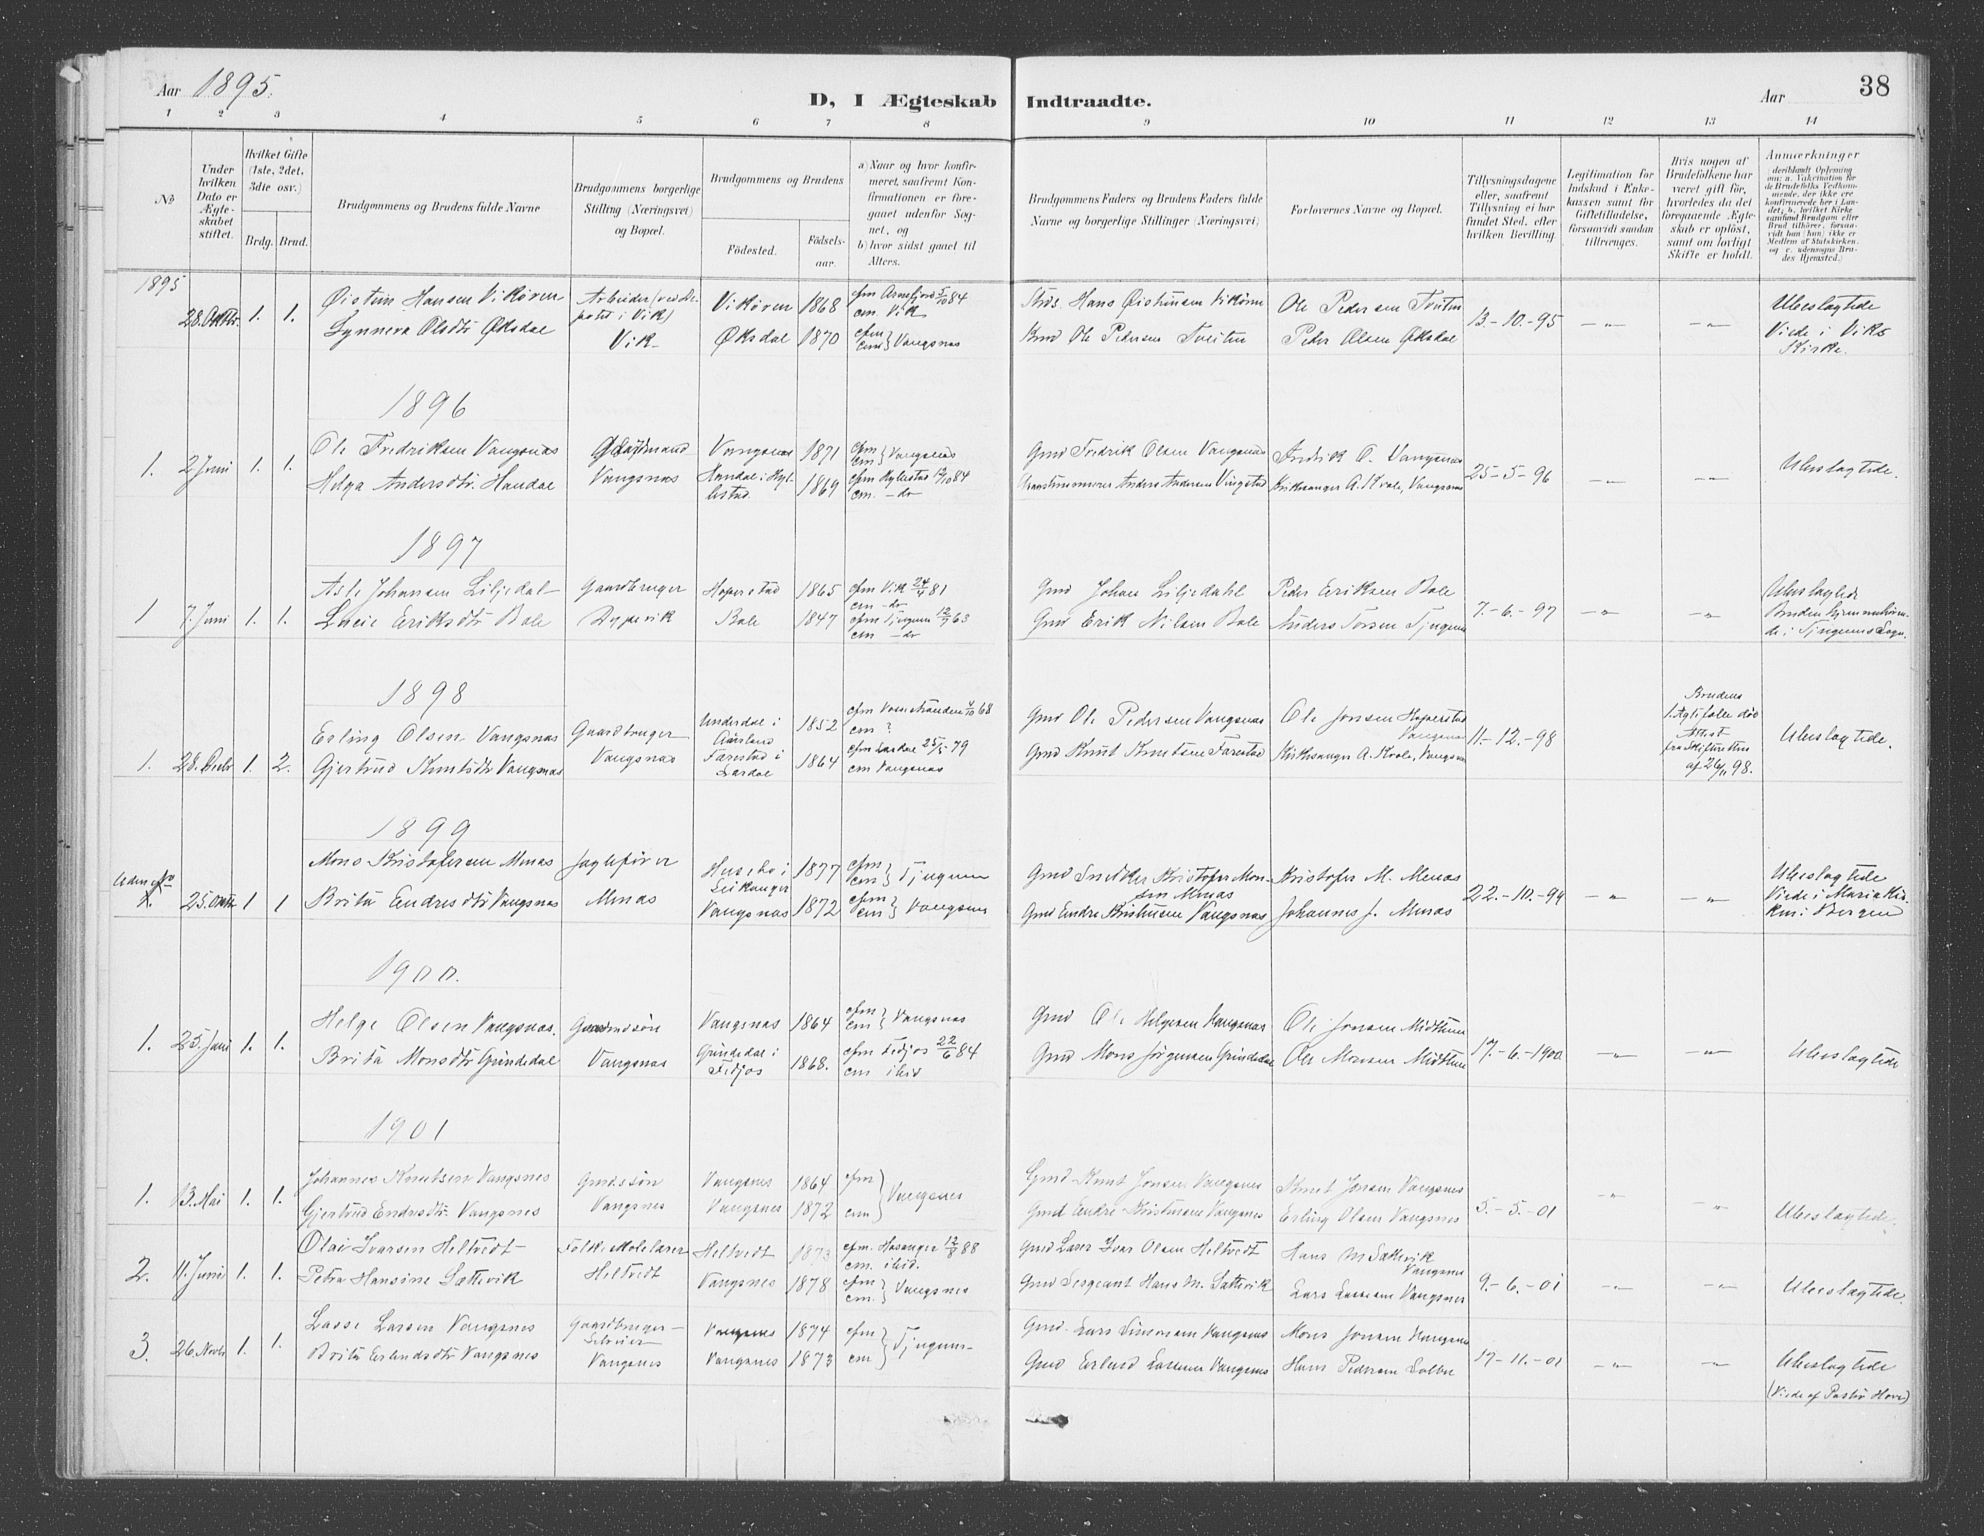 Aar 1895.
D, I Ægteskab Indtraadte.
Aar
38
1 2 3 4 5 6 7 8 9 10 11 12 13 14
No
Under hvilken Dato er Ægteskabet stiftet.
Hvilket Gifte (1ste, 2det, 3die osv.)
Brdg. Brud.
Brudgommens og Brudens fulde Navne
Brudgommens borgerlige Stilling (Næringsvei) og Bopæl.
Brudgommens og Brudens
Födested.
Födselsaar.
a) Naar og hvor konfirmeret, saafremt Konfirmationen er foregaaet udenfor Sognet, og
b) hvor sidst gaaet til Alters.
Brudgommens Faders og Brudens Faders fulde Navne og borgerlige Stillinger (Næringsvei)
Forlovernes Navne og Bopæl.
Tillysningsdagene eller, saafremt Tillysning ei har fundet Sted, efter hvilken Bevilling.
Legitimation for Indskud i Enkekassen samt for Giftetilladelse, forsaavidt saadan tiltrænges.
Hvis nogen af Brudefolkene har været gift för, hvorledes da det foregaaende Ægteskab er oplöst, samt om lovligt Skifte er holdt.
Anmærkninger
1895
28. Oktbr. 1. 1. Øistein Hansen Vikøren Arbeider Vikøren 1868 cfm Arnefjord 5/10 84 Hans Øistensen Vikøren Ole Pedersen Tveiten 13-10-95 -"- -"- Ubeslægtede
Synneva Olsdtr Øksdal Vik Øksdal 1870 cfm cm } Vangsnæs Gmd Ole Pedersen Tveiten Peder Olsen Øksdal Viede i Viks Kirke.
1896
1. 2 Juni 1. 1. Ole Fredriksen Vangsnæs Vangsnæs 1871 cfm cm } Vangsnæs Gmd Fredrik Olsen Vangsnæs Fredrik O. Vangsnæs 25-5-96 -"- -"- Ubeslægtede.
Helga Andersdtr. Vangsnæs 1869 cfm Hylestad 12/10 84 cm. - do Anders Andersen Kirkesanger A. Kvale, Vangsnæs
1897
1 7. Juni 1. 1. Asle Johansen Liljedal Gaardbruger Hoperstad 1865 cfm Vik 24/4 81 cm - do Gmd Johan Liljedahl Peder Eriksen Bale 7.-6-97 -"- -"- Ubeslægtede
Lucie Eriksdtr Bale Dypevik Bale 1847 cfm Tjugum 12/7 63 cm - do Gmd Erik Nilsen Bale Anders Torsen Tjugum Bruden hjemmehørende i Tjugums Sogn.
1898
1. 28. Decbr 1. 2. Erling Olsen Vangsnæs Gaardbruger Underdal i Aurland 1852 cfm Vossestranden 4/10 68 cm ? Gmd Ole Pedersen Vangsnæs Ole Jonsen Hoperstad Vangsnæs 11-12.-98 Brudens 1. Ægtefælle död Attest fra Skifteretten af 26/11 98. Ubeslægtede.
Gjertrud Knutsdtr Vangsnæs Vangsnæs Farestad i Lærdal 1864 cfm Lærdal 25/5 79 cm Vangsnæs Gmd Knut Knutsen Farestad Kirkesanger A. Kvale, Vangsnæs
1899
Uden No 25. Oktbr 1 1 Mons Kristofersen Menæs Jagtefører Husebø i Leikanger 1877 cfm cm } Tjugum Gmd Snedker Kristofer Monsen Menæs Kristofer M. Menæs 22.-10.-99 -"- -"- Ubeslægtede
Brita Endresdtr Vangsnæs Menæs Vangsnæs 1872 cfm cm } Vangsnæs Gmd Endre Kristensen Vangsnæs Johannes J. Menæs Viede i Mariakirken i Bergen
1900.
1. 25. Juni 1. 1. Helge Olsen Vangsnæs. Gaardmdsön Vangsnæs 1864 cfm cm } Vangsnæs Gmd Ole Helgesen Vangsnæs Ole Jonsen Midthun 17.-6.-1900 -"- -"- Ubeslægtede
Brita Monsdtr Grindedal Vangsnæs Grindedal i Fedjos 1868. cfm Fedjos 22/6 84 cm ibid Gmd Mons Jörgensen Grindedal Ole Monsen Midthun
1901
1. 13. Mai 1. 1. Johannes Knutsen Vangsnes Gmdssön Vangsnes 1864 cfm cm } Vangsnes Gmd Knut Jonsen Vangsnes Knut Jonsen Vangsnes 5.-5.-01 -"- -"- Ubeslægtede.
Gjertrud Endresdtr. Vangsnes Vangsnes Vangsnes 1872 Gmd Endre Kristensen Vangsnes Erling Olsen Vangsnes
2. 11. Juni 1. 1. Olai Ivarsen Heltvedt Folkeskolelærer Heltvedt 1873 cfm. 12/8 88 cm. ibid. Gmd Ivar Olsen Heltvedt Hans M Sættevik Vangsnes 9.-6.-01 -"- -"- Ubeslægtede.
Petra Hansine Sættevik Heltvedt Vangsnes 1878 cfm cm. } Vangsnes Gmd Sergeant Hans M. Sættevik Lars Larsen Vangsnes
3. 26. Novbr 1. 1. Lasse Larsen Vangsnes Gaardbruger Vangsnes 1874 cfm cm } Tjugum Gmd. Lars Simonsen Vangsnes Mons Jonsen Vangsnes 17-11.-01 -"- -"- Ubeslægtede
Brita Erlendsdtr Vangsnes Vangsnes Vangsnes 1873 Gmd Erlend Lassesen Vangsnes Hans Pedersen (Viede af Pastor Hove)